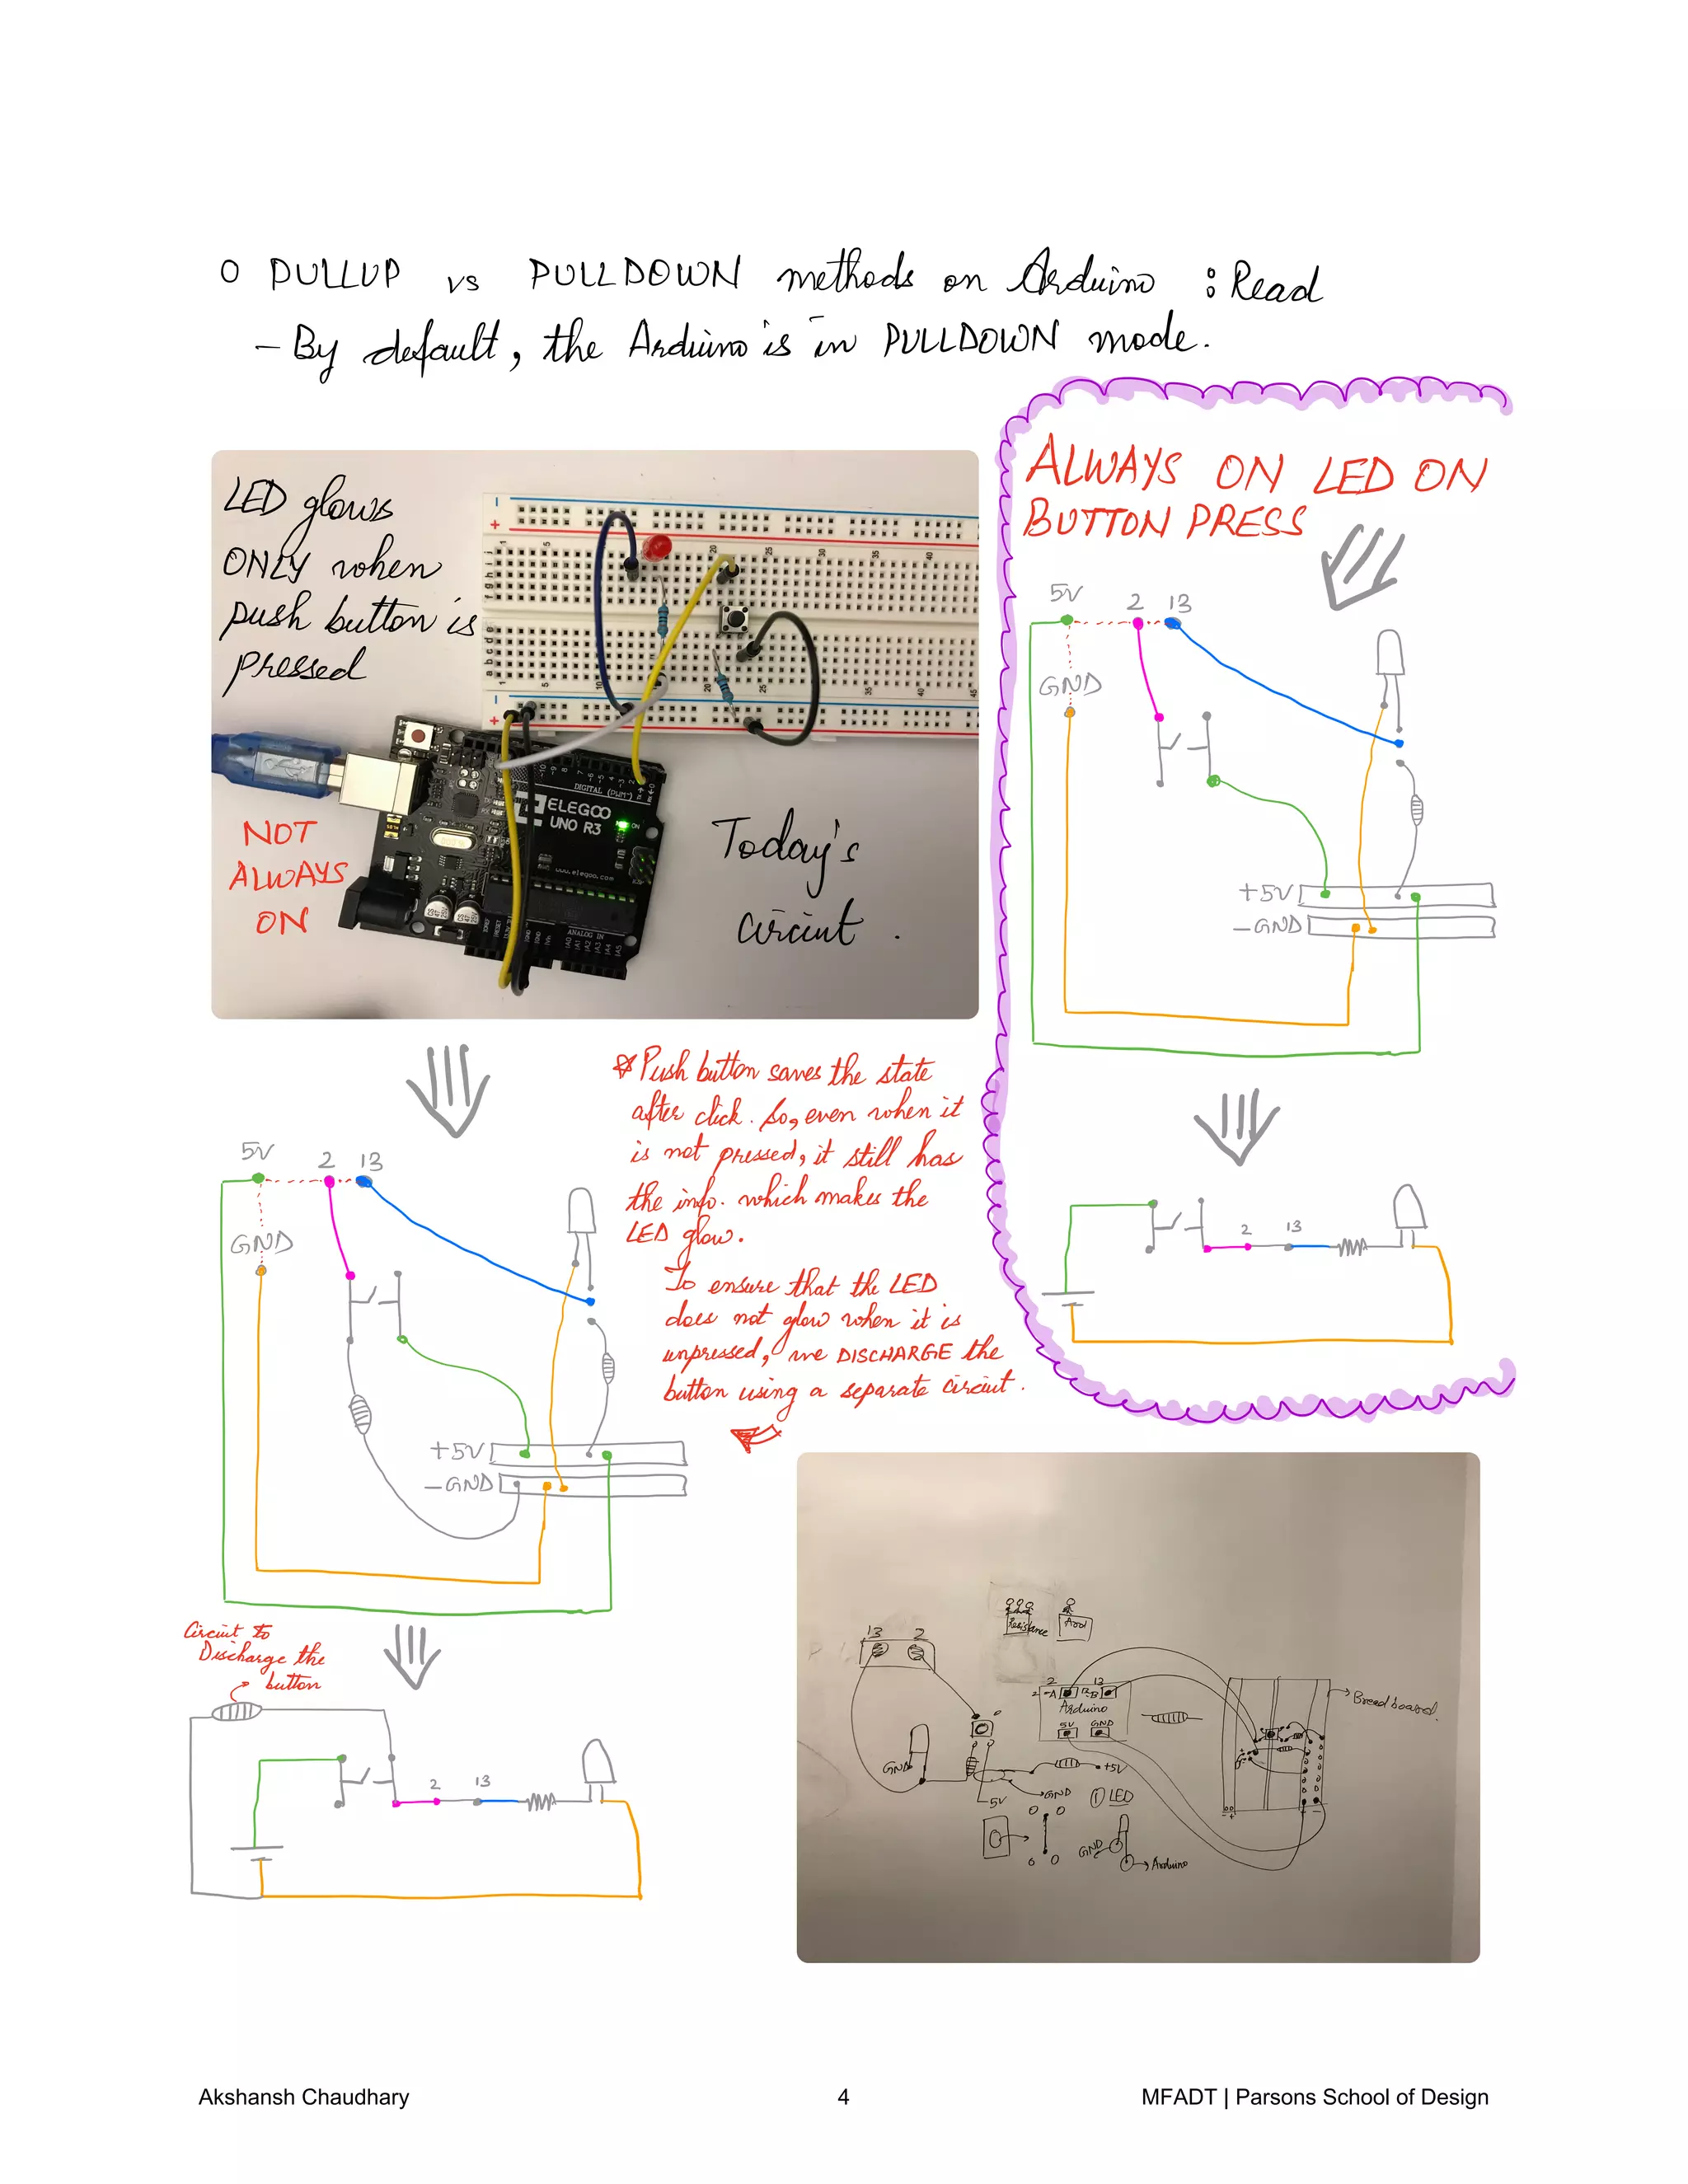 o PULLUP vs PULLDOWN methods on Arduino : Read
- By default, the Arduino is in PULLDOWN mode.
LED glows
ONLY when
push button is
pressed
NOT
ALWAYS
ON
Today's
circuit.
ELEGOO
UNO R3
DIGITAL (PWM~)
ON
www.elegoo.com
ANALOG IN
ALWAYS ON LED ON
BUTTON PRESS
5V 2 13
GND
+5V
-GND
2 13
* Push button saves the state
after click. So, even when it
is not pressed, it still has
the info. which makes the
LED glow.
To ensure that the LED
does not glow when it is
unpressed, we DISCHARGE the
button using a separate circuit.
5V 2 13
GND
+5V
-GND
Circuit to
Discharge the
button
2 13
Resistance
13 2
2 13
Arduino
5V GND
Breadboard.
GND
+5V
5V
GND
① LED
GND
Arduino
Akshansh Chaudhary 4 MFADT | Parsons School of Design